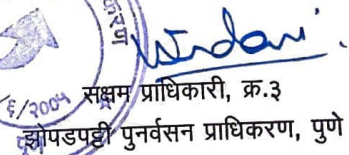 करण
६/२००५ सक्षम प्राधिकारी, क्र.३
झोपडपट्टी पुनर्वसन प्राधिकरण, पुणे